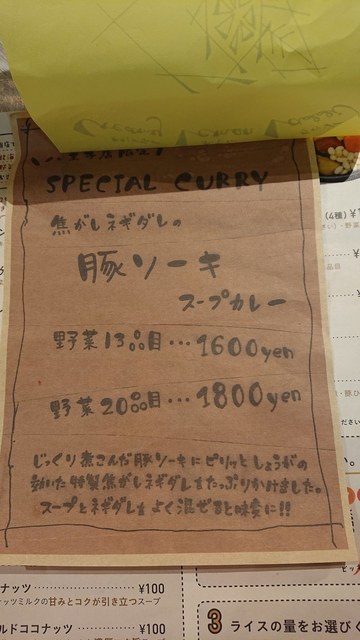 SPECIAL CURRY
焦がしネギダレの
豚ソーキ
スープカレー
野菜13品目…1600yen
野菜20品目…1800yen
じっくり煮こんだ豚ソーキにピリッとしょうがの
効いた特製焦がしネギダレをたっぷりかけました。
スープとネギダレをよく混ぜると味変に!!
ナッツ ¥100
ナッツミルクの甘みとコクが引き立つスープ
ルドココナッツ ¥100
3 ライスの量をお選びく